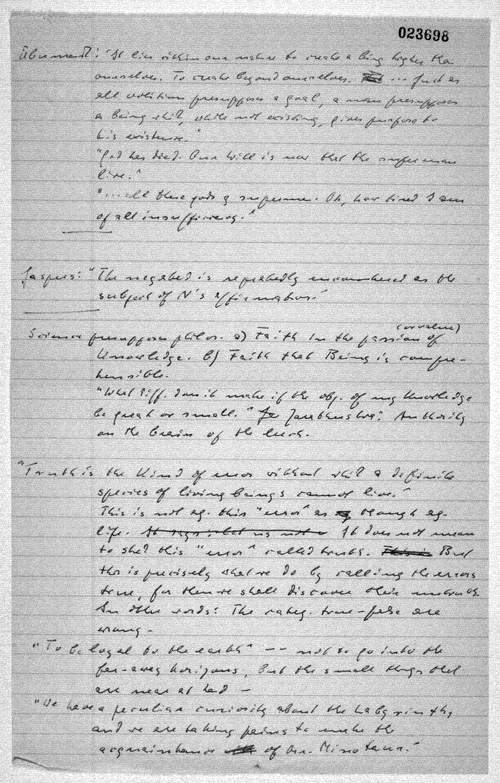 023698
Übermensch: "It lies within our nature to create a being higher than
ourselves. To create beyond ourselves. ... Just as
all volition presupposes a goal, a man presupposes
a being which, while not existing, gives purpose to
his existence."
"God has died. Our will is now that the superman
live."
"... all these gods & supermen. Oh, how tired I am
of all insufficiency."
Jaspers: "The negated is repeatedly encountered as the
subject of N's affirmation."
(or value)
Science presupposes philos. a) Faith in the passion of
knowledge. b) Faith that Being is compre-
hensible.
"What diff. does it make if the obj. of my knowledge
be great or small." Zarathustra: Authority
on the brain of the leech.
"Truth is the kind of error without which a definite
species of living beings cannot live."
This is not ag. this "error" as though ag.
life. It does not mean
to shed this "error" called truth. But
this is precisely what we do by calling the errors
true, for then we shall discover their untruth.
In other words: The categ. true-false are
wrong.
"To be loyal to the earth" -- not to go into the
far-away horizons, but the small things that
are near at hand -
"We have a peculiar curiosity about the labyrinth,
and we are taking pains to make the
acquaintance of Mr. Minotaur."